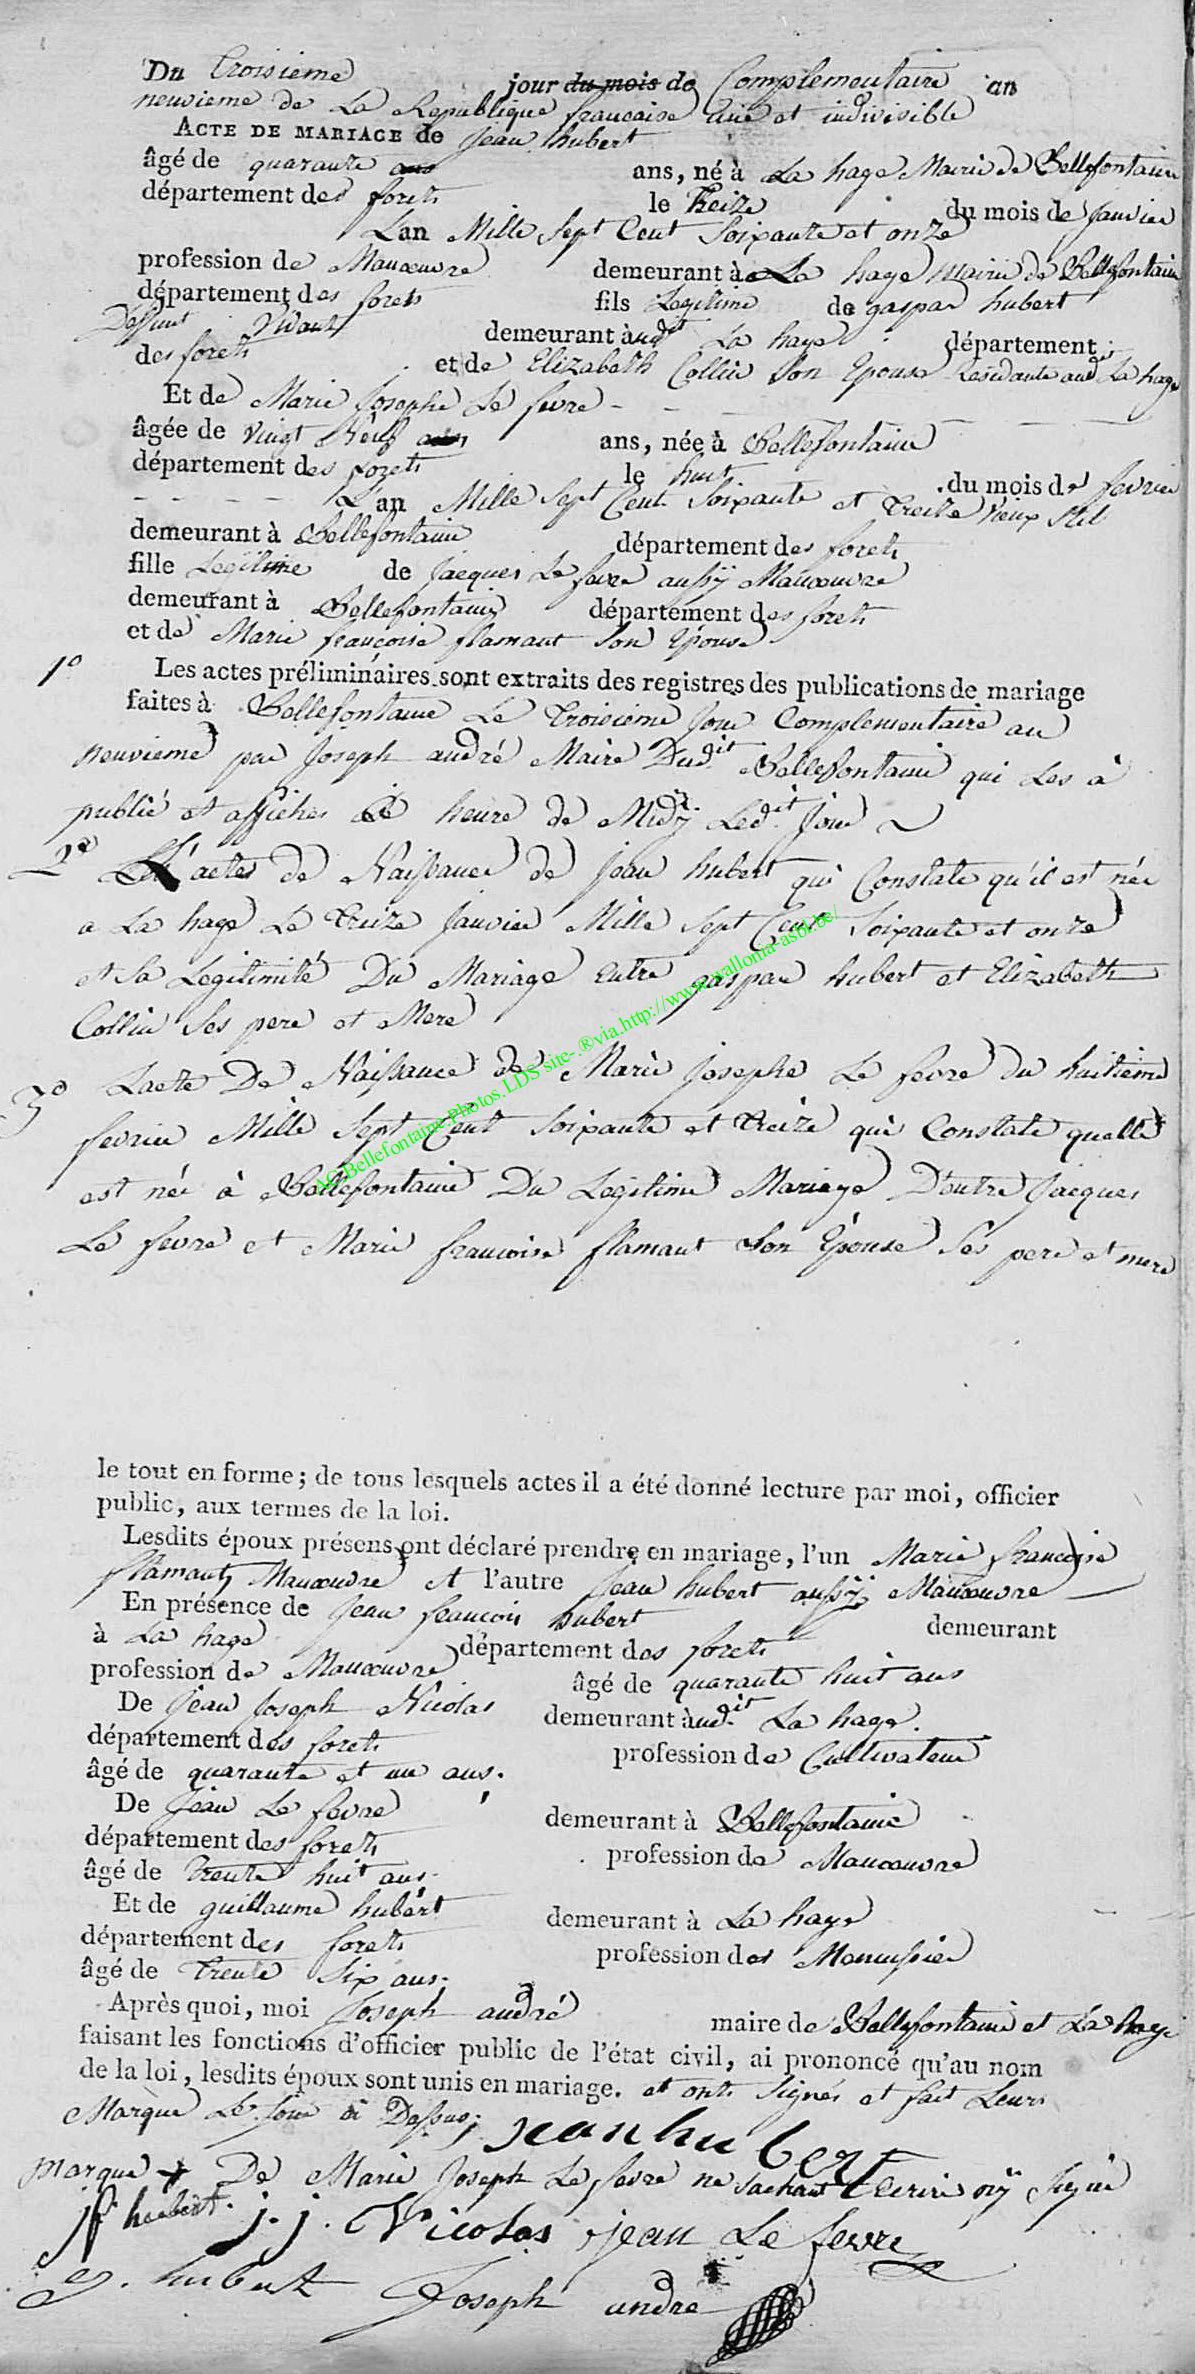 Du Troisieme jour du mois de Complementaire an
neuvieme de La Republique francaise une et indivisible
ACTE DE MARIAGE de Jean hubert
âgé de quarante ans ans, né à La hage Mairie de Bellefontaine
département des forets le Treize du mois de Janvier
L'an Mille Sept Cent Soixante et onze
profession de Manœuvre demeurant à La hage mairie de Bellefontaine
département des forets fils Legitime de gaspar hubert
Deffunt Vivant demeurant aud.it La hage département
des forets et de Elizabeth Collin Son Epouse Residante aud.it La hage
Et de Marie Josephe Le fevre
âgée de vingt Neuf ans ans, née à Bellefontaine
département des forets le huit du mois de fevrier
L'an Mille Sept Cent Soixante et Treize vieux Stil
demeurant à Bellefontaine département des forets
fille Legitime de Jacques Le fevre aussÿ Manœuvre
demeurant à Bellefontaine département des forets
et de Marie françoise flamant Son Epouse
1° Les actes préliminaires sont extraits des registres des publications de mariage
faites à Bellefontaine Le Troisieme Jour Complementaire an
neuvieme par Joseph andré Maire Dud.it Bellefontaine qui Les à
publié et affiches à heure de Midÿ Led.it Jour
2° L'actes de Naissance de Jean hubert qui Constate qu'il est née
a La hage Le Treize Janvier Mille Sept Cent Soixante et onze
et Sa Legitimité Du Mariage entre gaspar hubert et Elizabeth
Collin Ses pere et Mere
3° Lacte De Naissance de Marie Josephe Le fevre du huitieme
fevrier Mille Sept Cent Soixante et Treize qui Constate quelle
est née à Bellefontaine Du Legitime Mariage D'entre Jacques
Le fevre et Marie francoise flamant Son Epouse Ses pere et mere
AC.Bellefontaine.Photos.LDS site-.®via.http://www.wallonia-asbl.be/
le tout en forme; de tous lesquels actes il a été donné lecture par moi, officier
public, aux termes de la loi.
Lesdits époux présens ont déclaré prendre en mariage, l'un Marie francoise
flamant, Manœuvre et l'autre Jean hubert aussÿ Manœuvre
En présence de Jean francois hubert demeurant
à La hage département des forets
profession de Manœuvre âgé de quarante huit ans
De Jean Joseph Nicolas demeurant aud.it La hage.
département des forets profession de Cultivateur
âgé de quarante et un ans.
De Jean Le fevre demeurant à Bellefontaine
département des forets profession de Manœuvre
âgé de Trente huit ans.
Et de guillaume hubert demeurant à La hage
département des forets profession des Menuissier
âgé de Trente Six ans.
Après quoi, moi Joseph andré maire de Bellefontaine et La hage
faisant les fonctions d'officier public de l'état civil, ai prononcé qu'au nom
de la loi, lesdits époux sont unis en mariage. et ont Signés et fait Leurs
Marque Le Jour à Dessus;
jean hubert
marque + De Marie Joseph Le fevre ne Sachant Ecrire nÿ Signe
jf hubert. j. j. Nicolas jean Le fevre
g. hubert Joseph andre